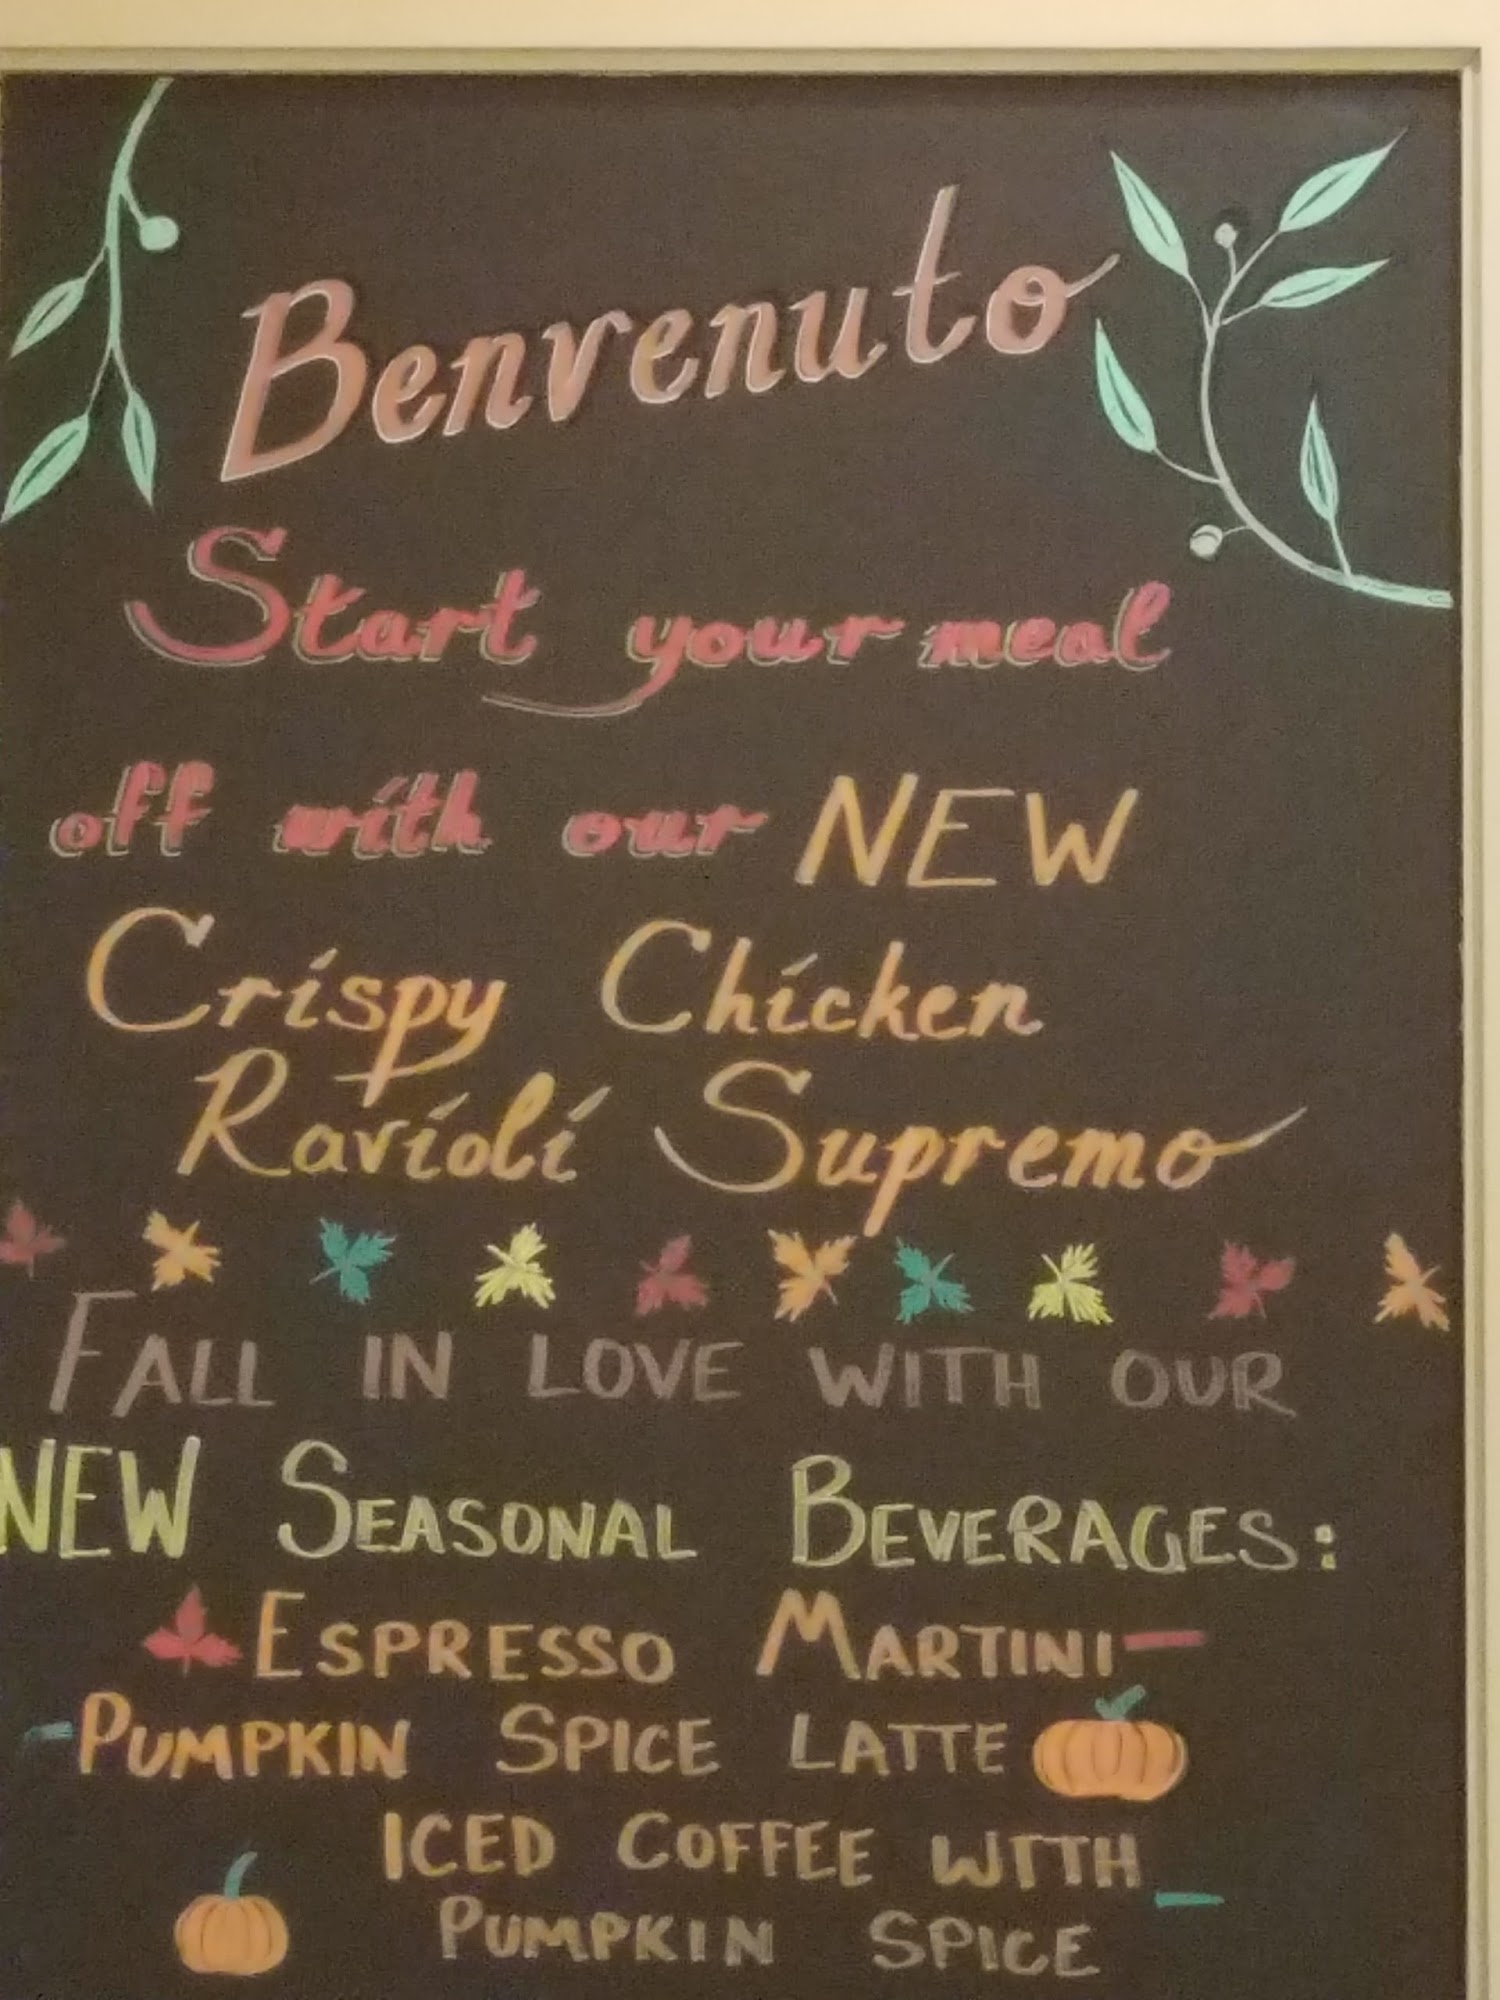 Benvenuto
Start your meal
off with our NEW
Crispy Chicken
Ravioli Supremo
FALL IN LOVE WITH OUR
NEW SEASONAL BEVERAGES:
ESPRESSO MARTINI
PUMPKIN SPICE LATTE
ICED COFFEE WITH
PUMPKIN SPICE